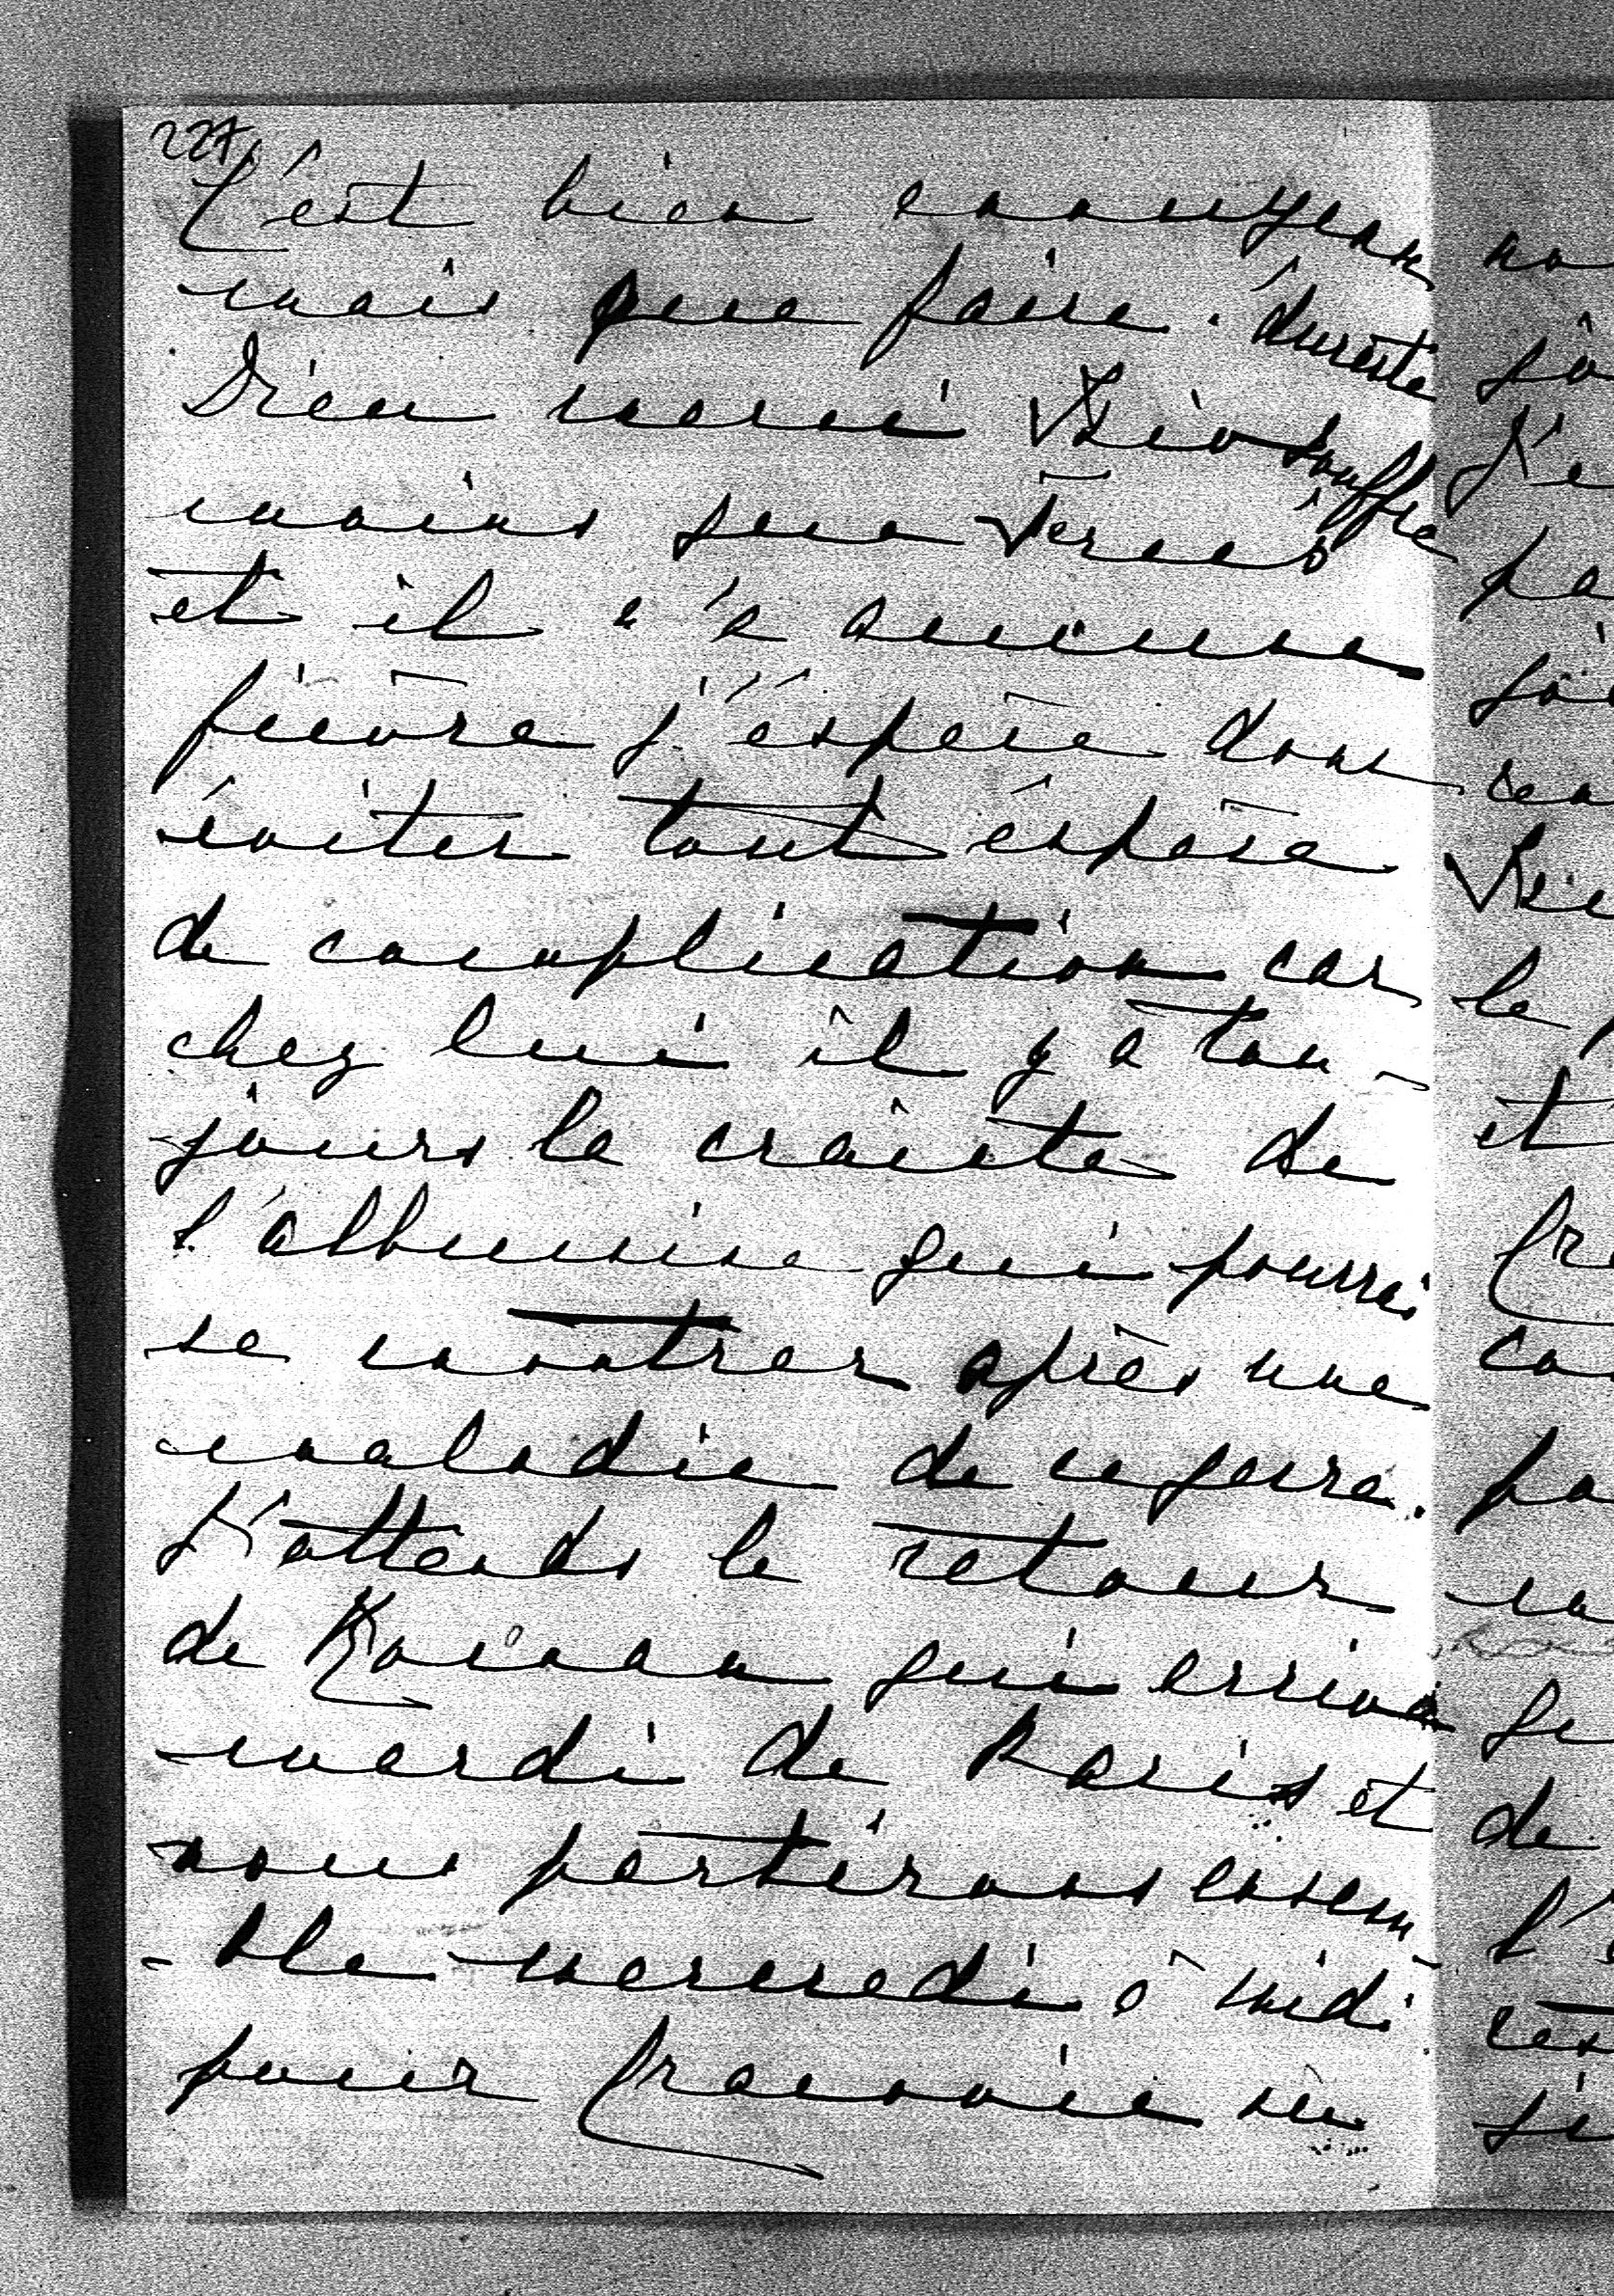 227
C'est bien ennuyeux
mais que faire. du reste
Dieu merci souffre
moins que
et il n'a aucune
fièvre j'éspère donc
éviter tout éspèce
de complication car
chez lui il y a tou-
jours la crainte de
l'albumine qui pourrai
se montrer après une
maladie de ce genre.
J'attends le retour
de Roman qui arrive
mardi de Paris et
nous partirons ensem-
-ble mercredi à midi
pour Cracovie où